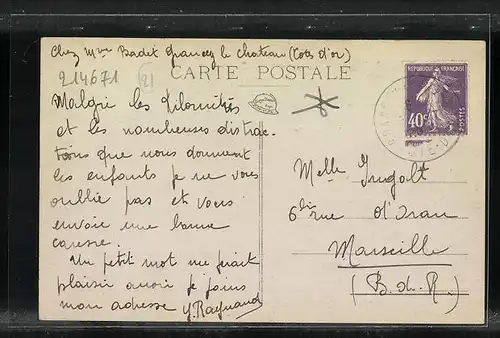 Chez Mme Badet Grancey le Chateau (Cotes d'or)
214671
(21)
CARTE POSTALE
Malgré les kilomètres
et les nombreuses distrac-
tions que nous donnent
les enfants je ne vous
oublie pas et vous
envoie une bonne
caresse.
Un petit mot me ferait
plaisir aussi je joins
mon adresse Y. Raynaud
REPUBLIQUE FRANÇAISE
40c
POSTES
Melle Ingalt
6 bis rue d'Isau
Marseille
(B. d. R.)